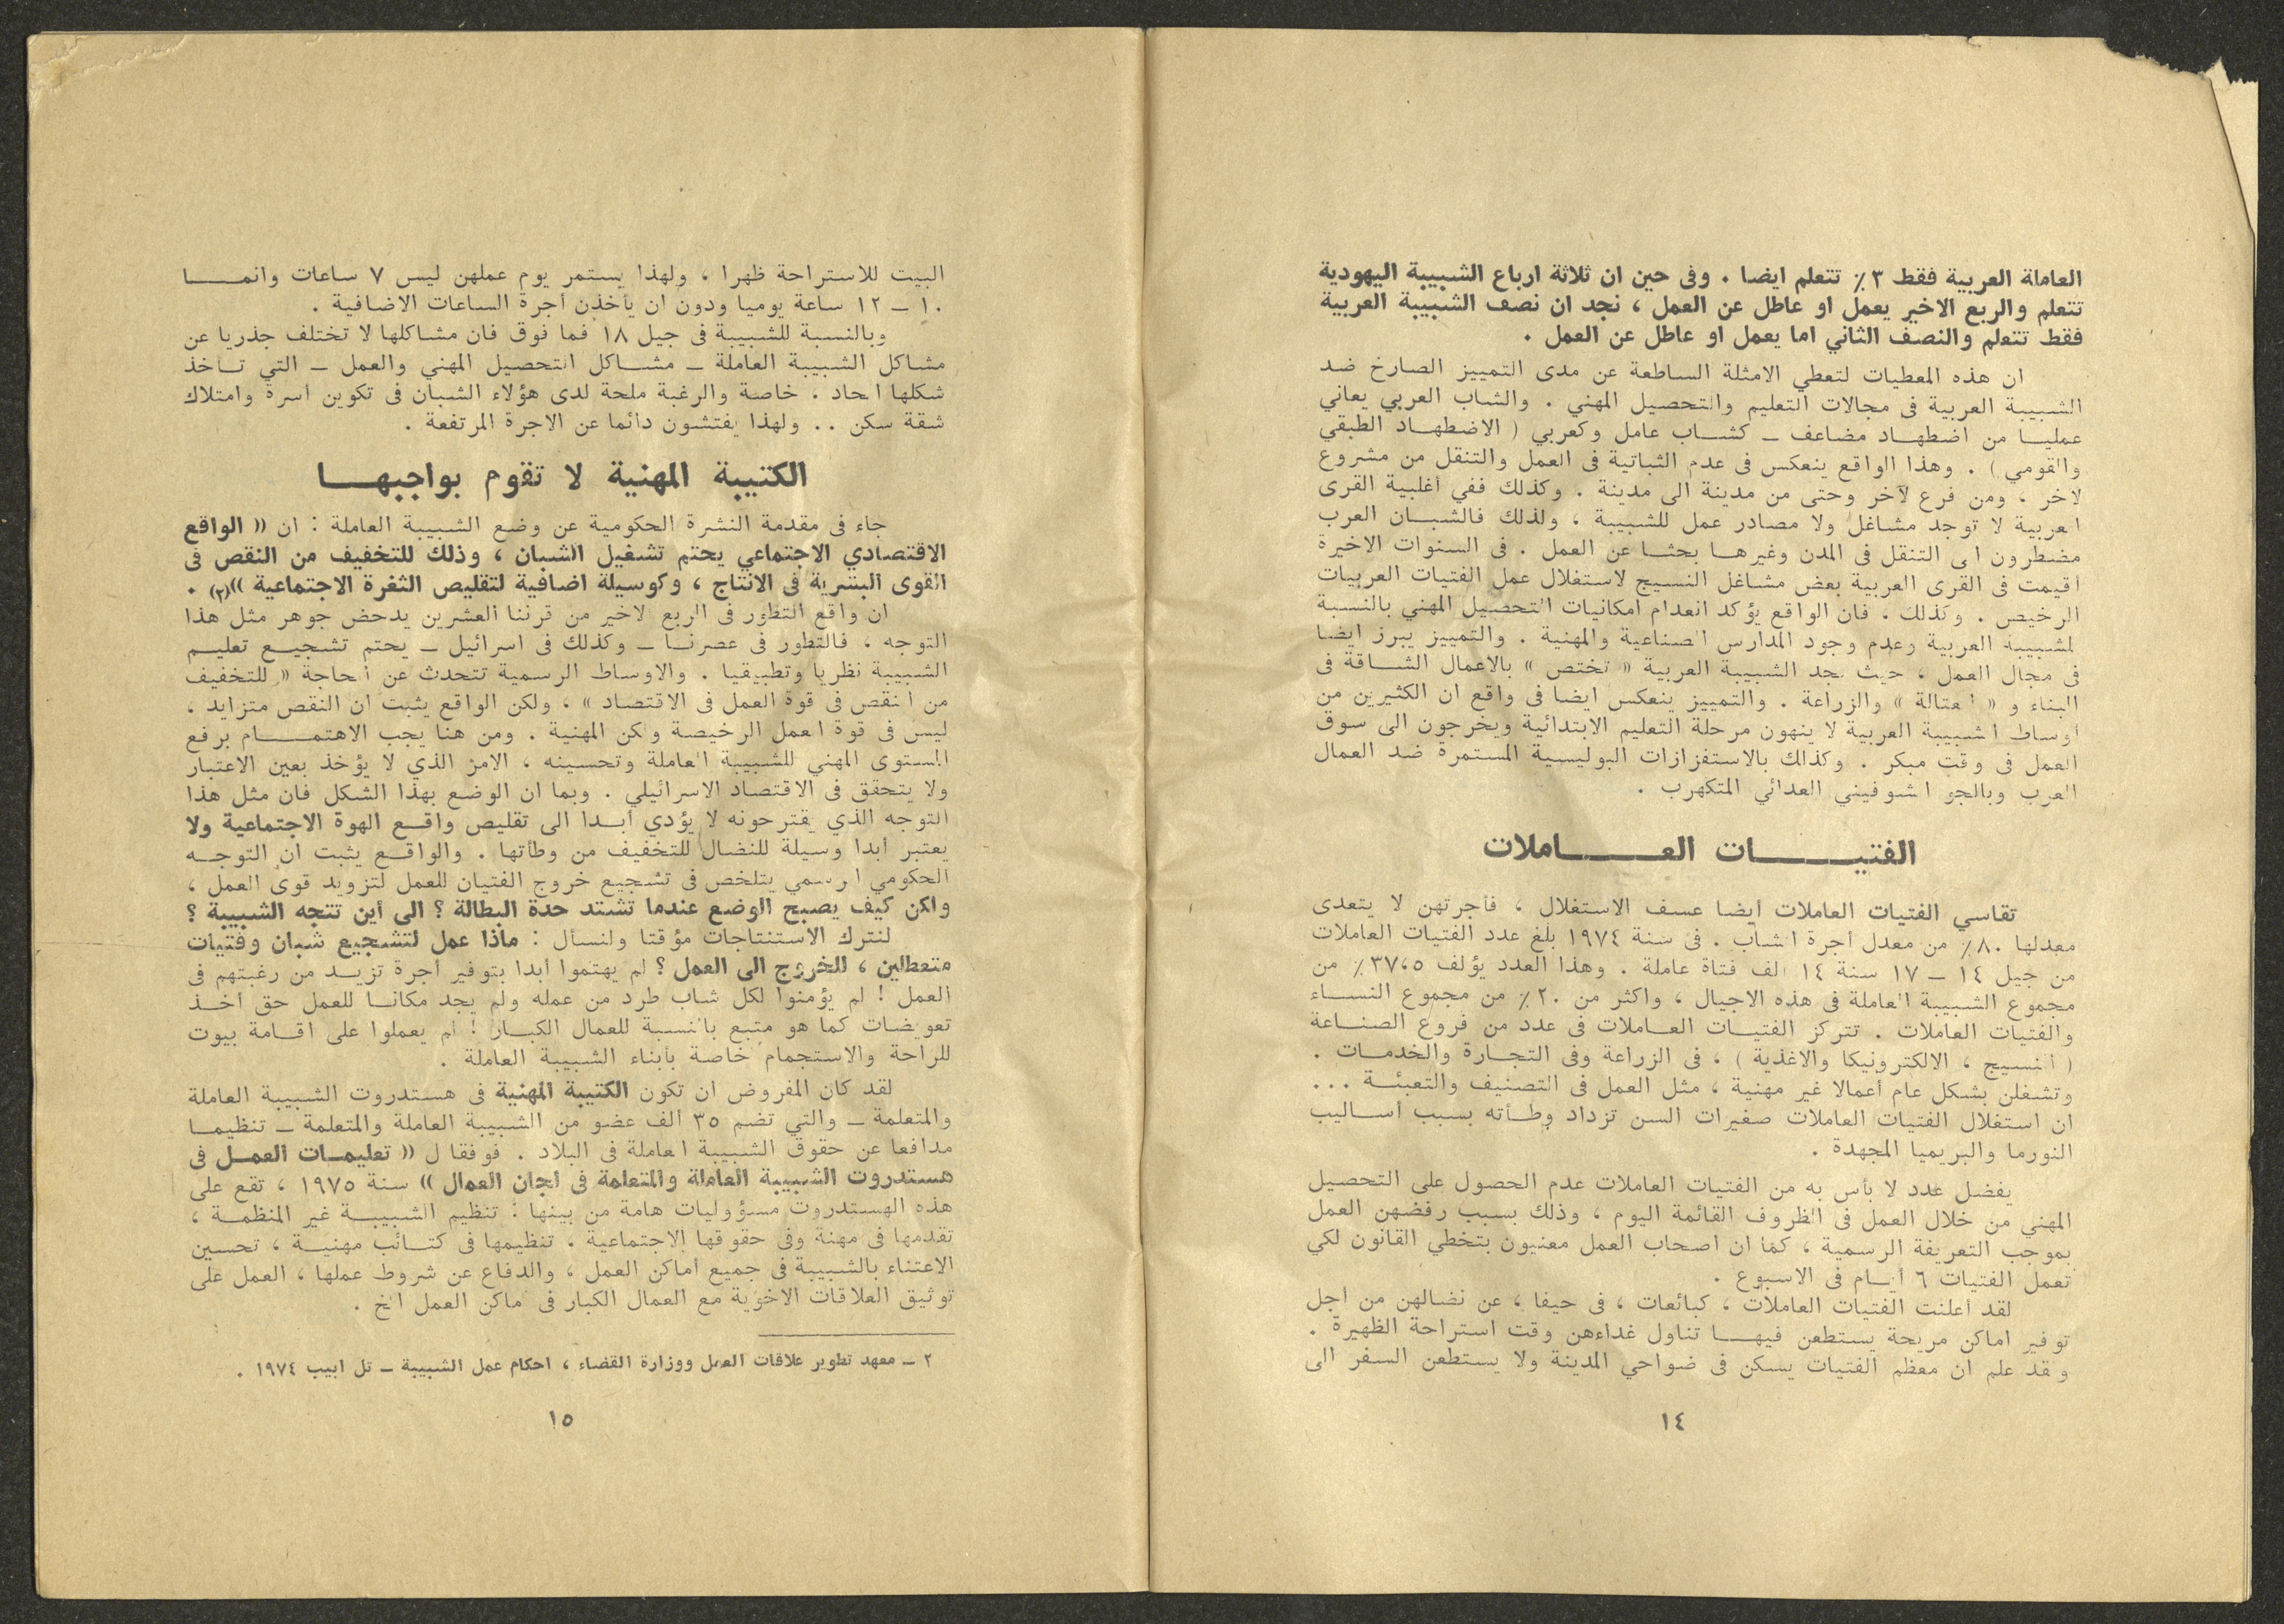 العاملة العربية فقط ٣٪ تتعلم ايضا . وفى حين ان ثلاثة ارباع الشبيبة اليهودية
تتعلم والربع الاخير يعمل او عاطل عن العمل ، نجد ان نصف الشبيبة العربية
فقط تتعلم والنصف الثاني اما يعمل او عاطل عن العمل .
ان هذه المعطيات لتعطي الامثلة الساطعة عن مدى التمييز الصارخ ضد
الشبيبة العربية فى مجالات التعليم والتحصيل المهني . والشاب العربي يعاني
عمليا من اضطهاد مضاعف ــ كشاب عامل وكعربي ( الاضطهاد الطبقي
والقومي ) . وهذا الواقع ينعكس فى عدم الثباتية فى العمل والتنقل من مشروع
لاخر ، ومن فرع لآخر وحتى من مدينة الى مدينة . وكذلك ففي أغلبية القرى
العربية لا توجد مشاغل ولا مصادر عمل للشبيبة ، ولذلك فالشبان العرب
مضطرون الى التنقل فى المدن وغيرها بحثا عن العمل . فى السنوات الاخيرة
أقيمت فى القرى العربية بعض مشاغل النسيج لاستغلال عمل الفتيات العربيات
الرخيص . وكذلك ، فان الواقع يؤكد انعدام امكانيات التحصيل المهني بالنسبة
لشبيبة العربية وعدم وجود المدارس الصناعية والمهنية . والتمييز يبرز ايضا
فى مجال العمل ، حيث نجد الشبيبة العربية « تختص » بالاعمال الشاقة فى
البناء و « العتالة » والزراعة . والتمييز ينعكس ايضا فى واقع ان الكثيرين من
أوساط الشبيبة العربية لا ينهون مرحلة التعليم الابتدائية ويخرجون الى سوق
العمل فى وقت مبكر . وكذالك بالاستفزازات البوليسية المستمرة ضد العمال
العرب وبالجو الشوفيني العدائي المتكهرب .
الفتيات العاملات
تقاسي الفتيات العاملات أيضا عسف الاستغلال ، فأجرتهن لا يتعدى
معدلها ٨٠٪ من معدل أجرة الشاب . فى سنة ١٩٧٤ بلغ عدد الفتيات العاملات
من جيل ١٤ ــ ١٧ سنة ١٤ الف فتاة عاملة . وهذا العدد يؤلف ٣٧،٥٪ من
مجموع الشبيبة العاملة فى هذه الاجيال ، واكثر من ٢٠٪ من مجموع النساء
والفتيات العاملات . تتركز الفتيات العاملات فى عدد من فروع الصناعة
( النسيج ، الالكترونيكا والاغذية ) ، فى الزراعة وفى التجارة والخدمات .
وتشغلن بشكل عام أعمالا غير مهنية ، مثل العمل فى التصنيف والتعبئة ...
ان استغلال الفتيات العاملات صغيرات السن تزداد وطأته بسبب أساليب
النورما والبريميا المجهدة .
يفضل عدد لا بأس به من الفتيات العاملات عدم الحصول على التحصيل
المهني من خلال العمل فى الظروف القائمة اليوم ، وذلك بسبب رفضهن العمل
بموجب التعريفة الرسمية ، كما ان اصحاب العمل معنيون بتخطي القانون لكي
تعمل الفتيات ٦ أيام فى الاسبوع .
لقد أعلنت الفتيات العاملات ، كبائعات ، فى حيفا ، عن نضالهن من أجل
توفير اماكن مريحة يستطعن فيها تناول غداءهن وقت استراحة الظهيرة .
وقد علم ان معظم الفتيات يسكن فى ضواحي المدينة ولا يستطعن السفر الى
١٤
البيت للاستراحة ظهرا ، ولهذا يستمر يوم عملهن ليس ٧ ساعات وانما
١٠ ــ ١٢ ساعة يوميا ودون ان يأخذن أجرة الساعات الاضافية .
وبالنسبة للشبيبة فى جيل ١٨ فما فوق فان مشاكلها لا تختلف جذريا عن
مشاكل الشبيبة العاملة ــ مشاكل التحصيل المهني والعمل ــ التي تأخذ
شكلها الحاد . خاصة والرغبة ملحة لدى هؤلاء الشبان فى تكوين أسرة وامتلاك
شقة سكن .. ولهذا يفتشون دائما عن الاجرة المرتفعة .
الكتيبة المهنية لا تقوم بواجبها
جاء فى مقدمة النشرة الحكومية عن وضع الشبيبة العاملة : ان « الواقع
الاقتصادي الاجتماعي يحتم تشغيل الشبان ، وذلك للتخفيف من النقص فى
القوى البشرية فى الانتاج ، وكوسيلة اضافية لتقليص الثغرة الاجتماعية »(٢) .
ان واقع التطور فى الربع لاخير من قرننا العشرين يدحض جوهر مثل هذا
التوجه ، فالتطور فى عصرنا ــ وكذلك فى اسرائيل ــ يحتم تشجيع تعليم
الشبيبة نظريا وتطبيقيا . والاوساط الرسمية تتحدث عن الحاجة « للتخفيف
من النقص فى قوة العمل فى الاقتصاد » ، ولكن الواقع يثبت ان النقص متزايد ،
ليس فى قوة العمل الرخيصة ولكن المهنية . ومن هنا يجب الاهتمام برفع
المستوى المهني للشبيبة العاملة وتحسينه ، الامر الذي لا يؤخذ بعين الاعتبار
ولا يتحقق فى الاقتصاد الاسرائيلي . وبما ان الوضع بهذا الشكل فان مثل هذا
التوجه الذي يقترحونه لا يؤدي أبدا الى تقليص واقع الهوة الاجتماعية ولا
يعتبر أبدا وسيلة للنضال للتخفيف من وطأتها . والواقع يثبت ان التوجه
الحكومي الرسمي يتلخص فى تشجيع خروج الفتيان للعمل لتزويد قوى العمل ،
ولكن كيف يصبح الوضع عندما تشتد حدة البطالة ؟ الى أين تتجه الشبيبة ؟
لنترك الاستنتاجات مؤقتا ولنسأل : ماذا عمل لتشجيع شبان وفتيات
متعطلين ، للخروج الى العمل ؟ لم يهتموا أبدا بتوفير أجرة تزيد من رغبتهم فى
العمل ! لم يؤمنوا لكل شاب طرد من عمله ولم يجد مكانا للعمل حق أخذ
تعويضات كما هو متبع بالنسبة للعمال الكبار ! لم يعملوا على اقامة بيوت
للراحة والاستجمام خاصة بأبناء الشبيبة العاملة .
لقد كان المفروض ان تكون الكتيبة المهنية فى هستدروت الشبيبة العاملة
والمتعلمة ــ والتي تضم ٣٥ الف عضو من الشبيبة العاملة والمتعلمة ــ تنظيما
مدافعا عن حقوق الشبيبة العاملة فى البلاد . فوفقا ل « تعليمات العمل فى
هستدروت الشبيبة العاملة والمتعلمة فى لجان العمال » سنة ١٩٧٥ ، تقع على
هذه الهستدروت مسؤوليات هامة من بينها : تنظيم الشبيبة غير المنظمة ،
تقدمها فى مهنة وفى حقوقها الاجتماعية ، تنظيمها فى كتائب مهنية ، تحسين
الاعتناء بالشبيبة فى جميع أماكن العمل ، والدفاع عن شروط عملها ، العمل على
توثيق العلاقات الاخوية مع العمال الكبار فى أماكن العمل الخ .
٢ ــ معهد تطوير علاقات العمل ووزارة القضاء ، احكام عمل الشبيبة ــ تل ابيب ١٩٧٤ .
١٥